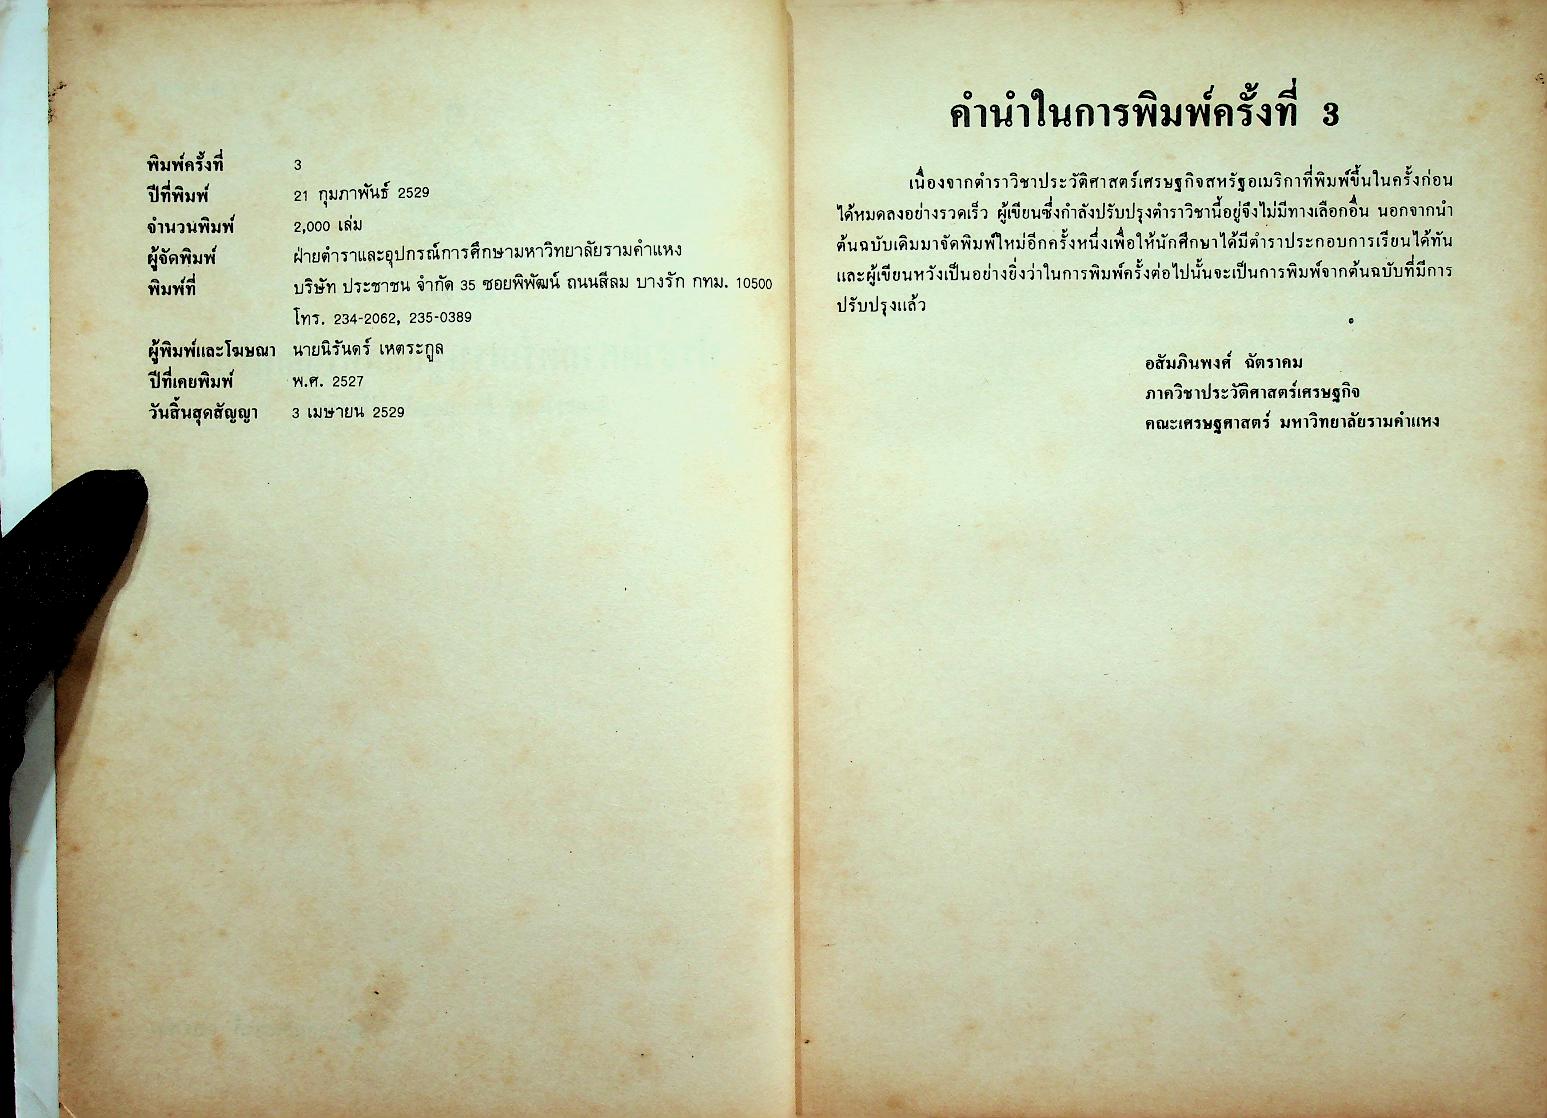 พิมพ์ครั้งที่ 3
ปีที่พิมพ์ 21 กุมภาพันธ์ 2529
จำนวนพิมพ์ 2,000 เล่ม
ผู้จัดพิมพ์ ฝ่ายตำราและอุปกรณ์การศึกษามหาวิทยาลัยรามคำแหง
พิมพ์ที่ บริษัท ประชาชน จำกัด 35 ซอยพิพัฒน์ ถนนสีลม บางรัก กทม. 10500
โทร. 234-2062, 235-0389
ผู้พิมพ์และโฆษณา นายนิรันดร์ เหตระกูล
ปีที่เคยพิมพ์ พ.ศ. 2527
วันสิ้นสุดสัญญา 3 เมษายน 2529
คำนำในการพิมพ์ครั้งที่ 3
เนื่องจากตำราวิชาประวัติศาสตร์เศรษฐกิจสหรัฐอเมริกาที่พิมพ์ขึ้นในครั้งก่อน
ได้หมดลงอย่างรวดเร็ว ผู้เขียนซึ่งกำลังปรับปรุงตำราวิชานี้อยู่จึงไม่มีทางเลือกอื่น นอกจากนำ
ต้นฉบับเดิมมาจัดพิมพ์ใหม่อีกครั้งหนึ่งเพื่อให้นักศึกษาได้มีตำราประกอบการเรียนได้ทัน
และผู้เขียนหวังเป็นอย่างยิ่งว่าในการพิมพ์ครั้งต่อไปนั้นจะเป็นการพิมพ์จากต้นฉบับที่มีการ
ปรับปรุงแล้ว
อสัมภินพงศ์ ฉัตราคม
ภาควิชาประวัติศาสตร์เศรษฐกิจ
คณะเศรษฐศาสตร์ มหาวิทยาลัยรามคำแหง